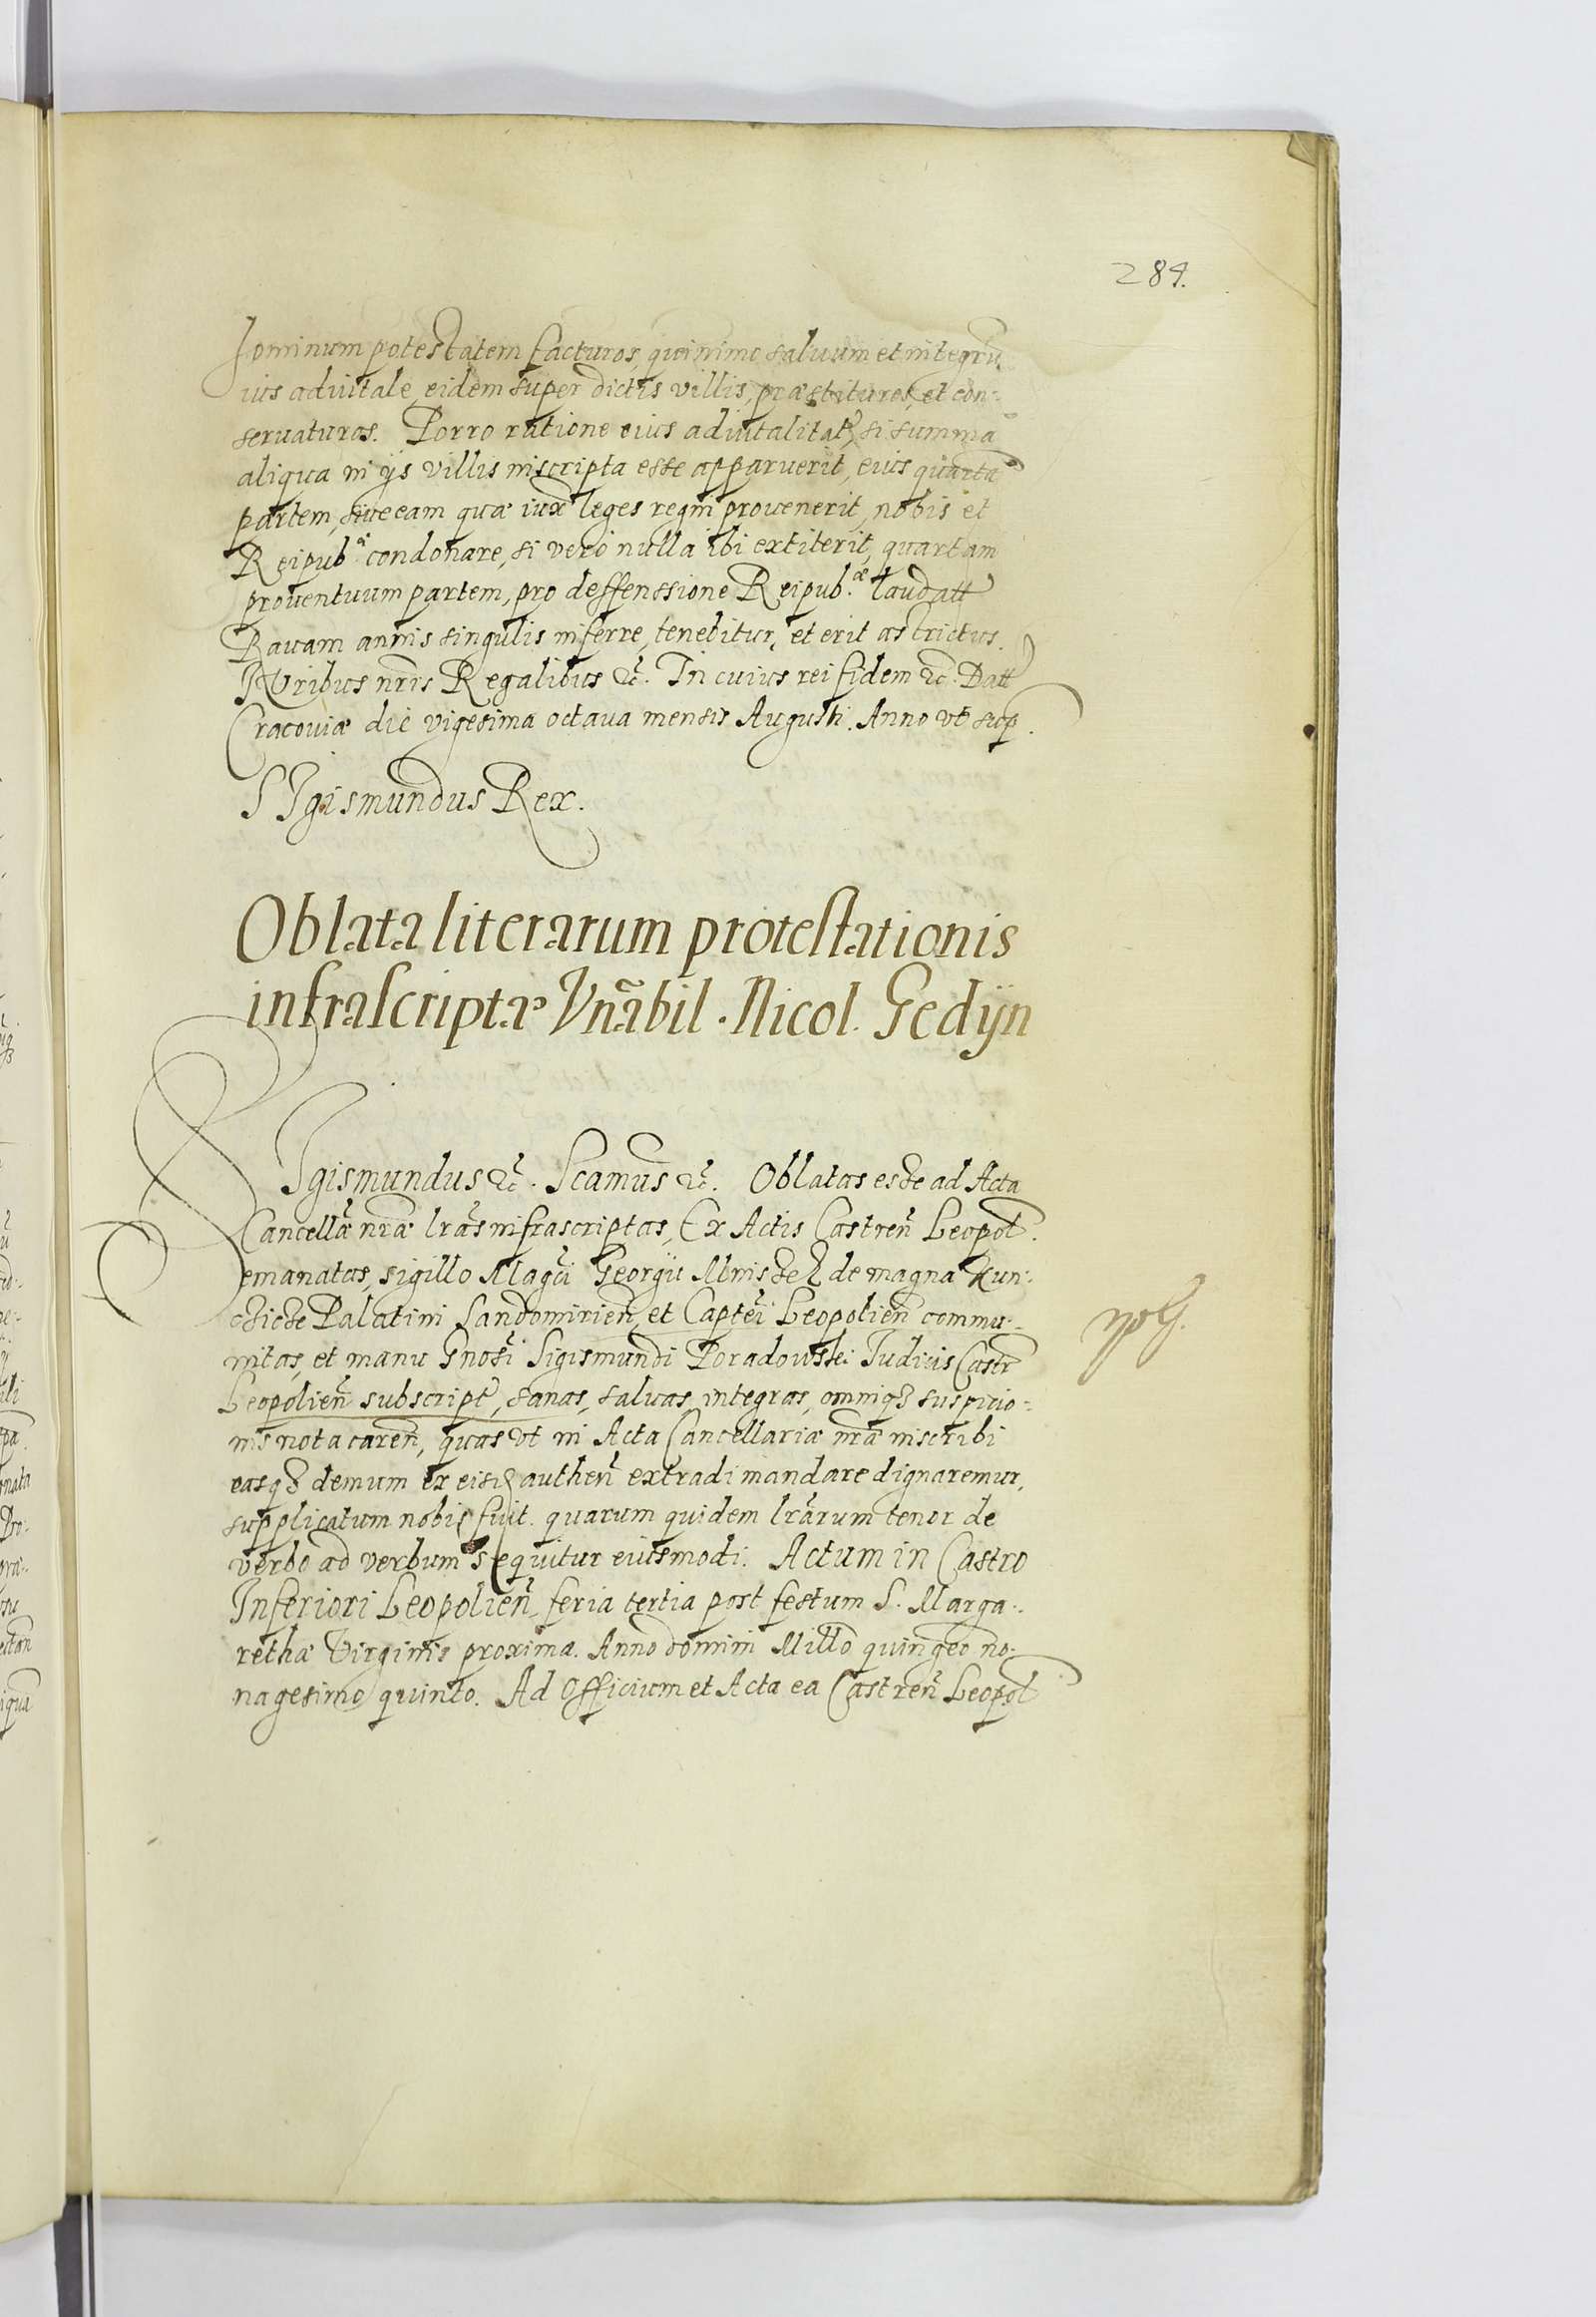 284.
hominum potestatem facturos, quinimo salvum et integrũ
ius aduitale, eidem super dictis villis, præstituros, et con-
seruaturos. Porro ratione eius aduitalitat, si summa
aliqua in ijs villis inscripta esse apparuerit, eius quartã
partem, siue eam quæ iux leges regni prouenerit, nobis et
Reipub. condonare, si vero nulla ibi extiterit, quartam
prouentuum partem, pro deffenssione Reipub.æ laudatt
Rauam annis singulis inferre, tenebitur, et erit astrictus.
IVribus nr̃is Regalibus &c̃. In cuius rei fidem &c. Datt
Cracouiæ die vigesima octaua mensis Augusti. Anno vt sup.
SIgismundus Rex.
Oblata literarum protestationis
infrascriptæ Vñabil. Nicol. Gedÿn
SIgismundus &c̃. Scamus &c̃. Oblatas esse ad Acta
Cancellæ nr̃æ lr̃as infrascriptas, Ex Actis Castreñ Leopol.
emanatas, sigillo Magci Georgii Mniszek de magna Kun-
czicze Palatini Sandomirieñ, et Captei Leopolieñ commu-
nitas, et manu Gnosi Sigismundi Poradowski Iudicis Castr
Leopolieñ subscript, sanas, saluas, integras, omniq3 suspicio-
nis nota careñ, quas vt in Acta Cancellariæ nr̃æ inscribi
easq3 demum ex eisd autheñ extradi mandare dignaremur,
supplicatum nobis fuit. quarum quidem lr̃arum tenor de
verbo ad verbum sequitur eiusmodi. Actum in Castro
Inferiori Leopolieñ, feria tertia post festum S. Marga-
rethæ Virginis proxima. Anno domini Millo quingeo no-
nagesimo quinto. Ad Officium et Acta ea Castreñ Leopol